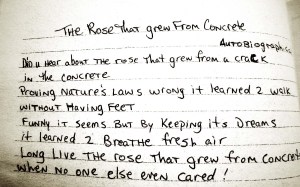 The Rose That grew From Concrete
AutoBiographical
Did u Hear about THE rose THat grew from a craCK
in the concrete
Proving Nature's Laws wrong it learned 2 walk
without Having Feet
Funny it Seems But By Keeping its Dreams
it learned 2 Breathe fresh air
Long Live THE rose THat grew from Concrete
when no one else even cared!